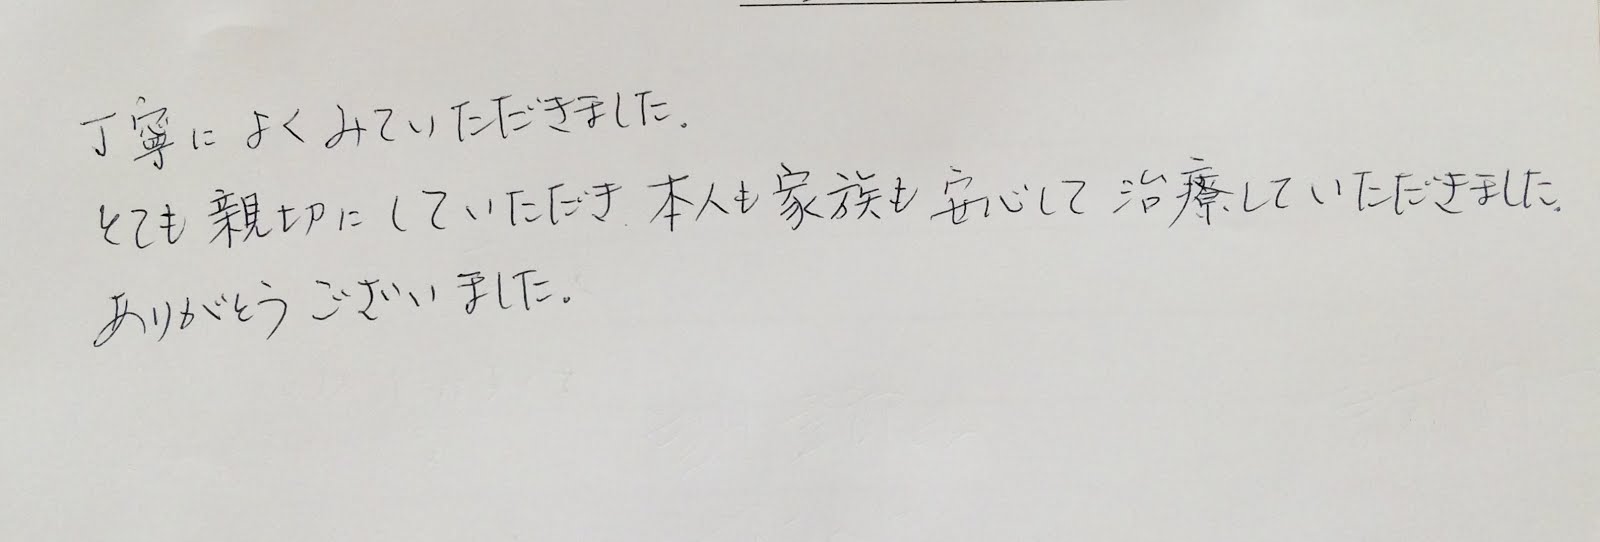 丁寧によくみていただきました。
とても親切にしていただき本人も家族も安心して治療していただきました。
ありがとうございました。